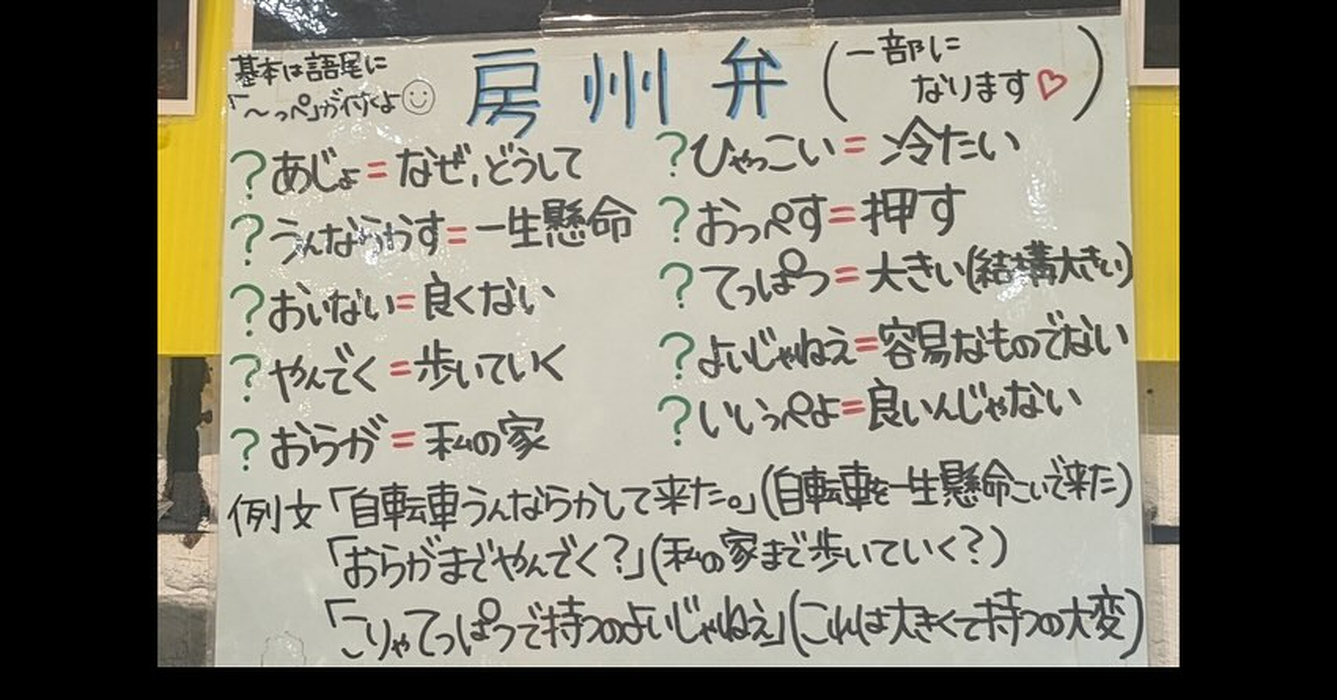 基本は語尾に
「～っぺ」が付くよ
房州弁(一部に
なります♡)
?あじょ=なぜ,どうして
?うんならかす=一生懸命
?おいない=良くない
?やんでく=歩いていく
?おらが=私の家
?ひゃっこい=冷たい
?おっぺす=押す
?てっぱつ=大きい(結構大きい)
?よいじゃねえ=容易なものでない
?いいっぺよ=良いんじゃない
例文「自転車うんならかして来た。」(自転車を一生懸命こいで来た)
「おらがまでやんでく?」(私の家まで歩いていく?)
「こりゃてっぱつで持つのよいじゃねえ」(これは大きくて持つの大変)